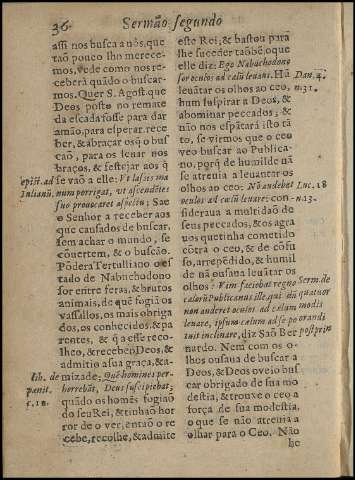 36
Sermão segundo
assi nos busca a nós, que
tão pouco lho merece-
mos, vede como nos re-
ceberá quãdo o buscar-
mos. Quer S. Agost. que
Deos posto no remate
da escada fosse para dar
a mão, para esperar, rece-
ber, & abraçar os q̃ o bus-
cão, para os leuar nos
braços, & festejar aos q̃
se vão a elle: Vt lassis ma
num porrigat, vt ascendẽtes
suo prouocaret aspectu; Sae
o Senhor a receber aos
que cansados de buscar,
sem achar o mundo, se
cõuertem, & o buscão.
Põdera Tertulliano o es
tado de Nabuchodono
sor entre feras, & brutos
animais, de quẽ fogião os
vassallos, os mais obriga
dos, os conhecidos, & pa
rentes, & q̃ a esse reco-
lheo, & recebeo Deos, &
admitio a sua graça, & a-
mizade; Quẽ homines per-
horrebãt, Deus suscipiebat;
quãdo os homẽs fogião
do seu Rei, & tinhão hor
ror de o ver, então o re
cebe, recolhe, & admite
epist. ad
Iulianũ.
lib. de
pænit.
c. 12.
este Rei, & bastou pará
lhe suceder tão bẽ o que
elle diz: Ego Nabuchodono
sor oculos ad cælũ leuaui. Há
leuãtar os olhos ao ceo,
hum suspirar a Deos, &
abominar peccados; &
não nos espãtará isto tã
to, se virmos que o ceo
veo buscar ao Publica-
no, porq̃ de humilde nã
se atreuia a leuantar os
olhos ao ceo: Nõ audebat
oculos ad cælũ leuare: con-
sideraua a multidão de
seus peccados, & os agra
uos que tinha cometido
cõtra o ceo, & de cõfu
so, arrepẽdido, & humil
de nã ousaua leuãtar os
olhos: Vim faciebat regno
cælorũ Publicanus ille, qui dũ
non auderet oculos ad cælum
leuare, ipsum cælum ad se po
tuit inclinare, diz São Ber
nardo. Nem com os o-
lhos ousaua de buscar a
Deos, & Deos o veio bus
car obrigado de sua mo
destia, & trouxe o ceo a
força de sua modestia,
o que se não atreuia a
olhar para o Ceo. Não
he
Dan. 4.
n. 31.
Luc. 18
n. 13.
Serm. de